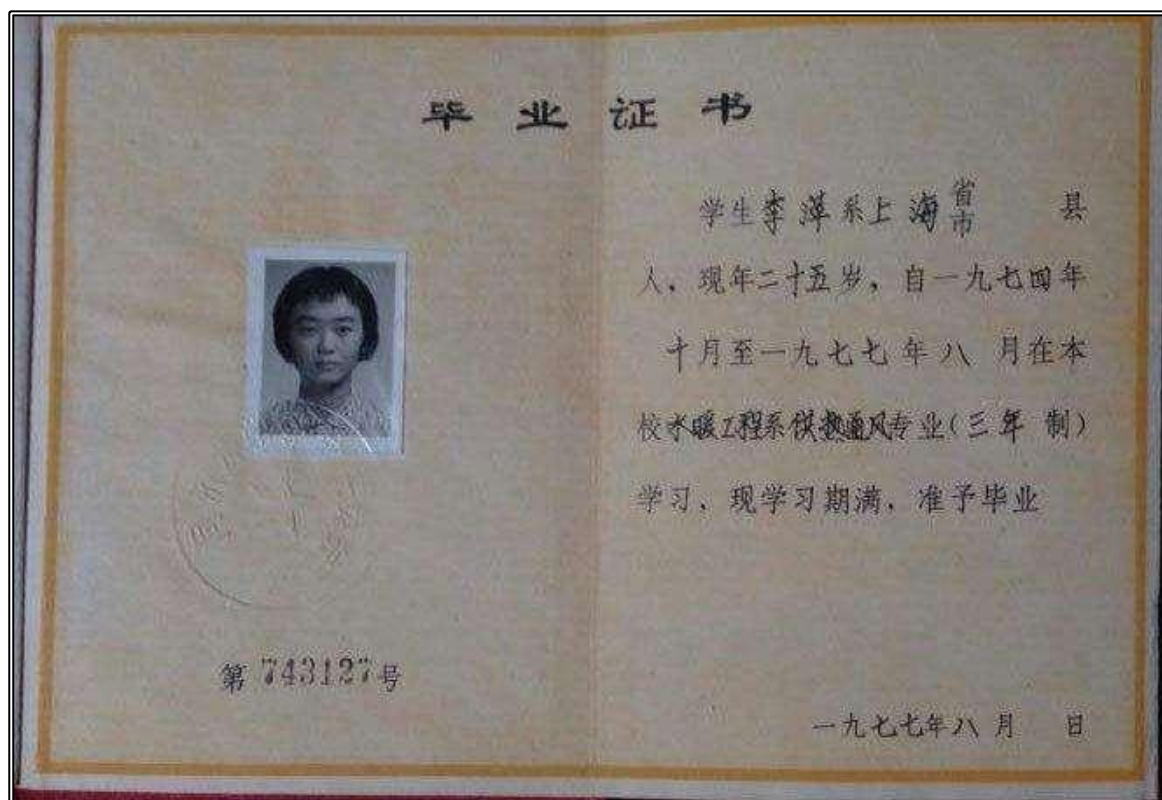 毕业证书
学生李萍系上海省市 县
人，现年二十五岁，自一九七四年
十月至一九七七年八 月在本
校水暖工程系供热通风专业(三年 制)
学习、现学习期满，准予毕业
第743127号
一九七七年八 月 日